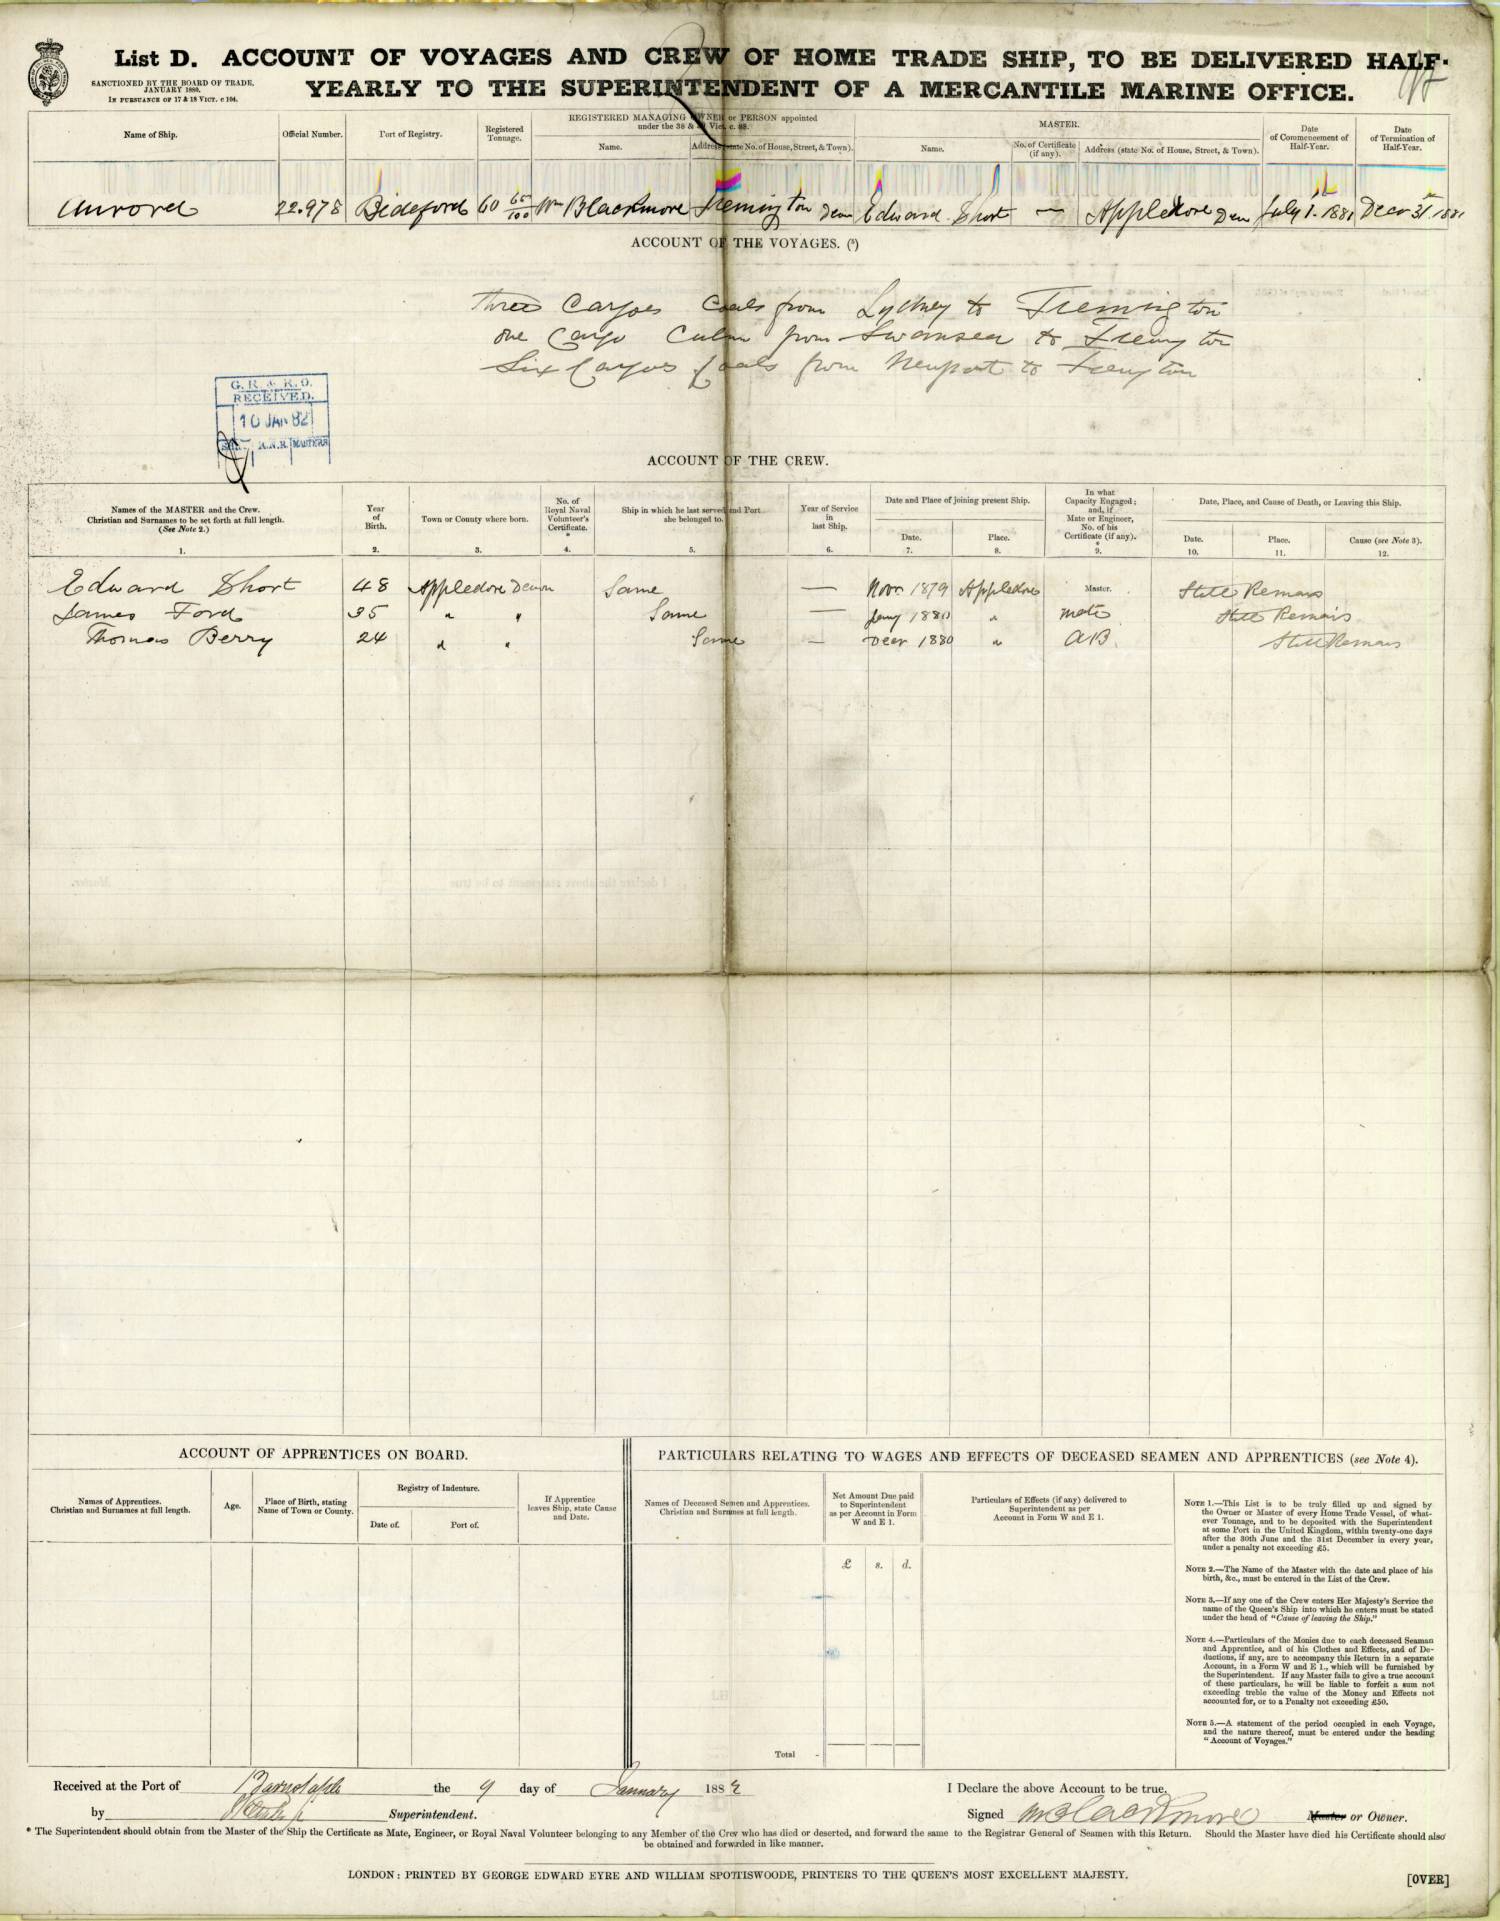 List D. ACCOUNT OF VOYAGES AND CREW OF HOME TRADE SHIP, TO BE DELIVERED HALF-
YEARLY TO THE SUPERINTENDENT OF A MERCANTILE MARINE OFFICE.
SANCTIONED BY THE BOARD OF TRADE,
JANUARY 1880,
IN PURSUANCE OF 17 & 18 VICT. c 104.
Name of Ship. Official Number. Port of Registry. Registered Tonnage. REGISTERED MANAGING OWNER or PERSON appointed under the 38 & 39 Vict. c. 88. Name. Address (state No. of House, Street, & Town). MASTER. Name. No. of Certificate (if any). Address (state No. of House, Street, & Town). Date of Commencement of Half-Year. Date of Termination of Half-Year.
Aurora 22.978 Bideford 60 65/100 Wm Blackmore Fremington Devon Edward Short — Appledore Devon July 1. 1881 Decr 31 1881
ACCOUNT OF THE VOYAGES. (5)
Three Cargoes Coals from Lydney to Fremington
one Cargo Culm from Swansea to Fremington
Six Cargoes Coals from Newport to Fremington
G. R. & R. O.
RECEIVED.
10 JAN 82
R.N.R. MASTERS
ACCOUNT OF THE CREW.
Names of the MASTER and the Crew. Christian and Surnames to be set forth at full length. (See Note 2.) 1.
Year of Birth. 2.
Town or County where born. 3.
No. of Royal Naval Volunteer's Certificate. * 4.
Ship in which he last served, and Port she belonged to. 5.
Year of Service in last Ship. 6.
Date and Place of joining present Ship. Date. 7. Place. 8.
In what Capacity Engaged; and, if Mate or Engineer, No. of his Certificate (if any). * 9.
Date, Place, and Cause of Death, or Leaving this Ship. Date. 10. Place. 11. Cause (see Note 3). 12.
Edward Short 48 Appledore Devon Same — Novr 1879 Appledore Master. Still Remains
James Ford 35 " " Same — Jany 1880 " Mate Still Remains
Thomas Berry 24 " " Same — Decr 1880 " AB. Still Remains
ACCOUNT OF APPRENTICES ON BOARD.
Names of Apprentices. Christian and Surnames at full length. Age. Place of Birth, stating Name of Town or County. Registry of Indenture. Date of. Port of. If Apprentice leaves Ship, state Cause and Date.
PARTICULARS RELATING TO WAGES AND EFFECTS OF DECEASED SEAMEN AND APPRENTICES (see Note 4).
Names of Deceased Seamen and Apprentices. Christian and Surnames at full length. Net Amount Due paid to Superintendent as per Account in Form W and E 1. Particulars of Effects (if any) delivered to Superintendent as per Account in Form W and E 1.
£ s. d.
Total -
NOTE 1.—This List is to be truly filled up and signed by
the Owner or Master of every Home Trade Vessel, of what-
ever Tonnage, and to be deposited with the Superintendent
at some Port in the United Kingdom, within twenty-one days
after the 30th June and the 31st December in every year,
under a penalty not exceeding £5.
NOTE 2.—The Name of the Master with the date and place of his
birth, &c., must be entered in the List of the Crew.
NOTE 3.—If any one of the Crew enters Her Majesty's Service the
name of the Queen's Ship into which he enters must be stated
under the head of "Cause of leaving the Ship."
NOTE 4.—Particulars of the Monies due to each deceased Seaman
and Apprentice, and of his Clothes and Effects, and of De-
ductions, if any, are to accompany this Return in a separate
Account, in a Form W and E 1., which will be furnished by
the Superintendent. If any Master fails to give a true account
of these particulars, he will be liable to forfeit a sum not
exceeding treble the value of the Money and Effects not
accounted for, or to a Penalty not exceeding £50.
NOTE 5.—A statement of the period occupied in each Voyage,
and the nature thereof, must be entered under the heading
"Account of Voyages."
Received at the Port of Barnstaple the 9 day of January 1882
by Superintendent.
I Declare the above Account to be true,
Signed Wm Blackmore Master or Owner.
* The Superintendent should obtain from the Master of the Ship the Certificate as Mate, Engineer, or Royal Naval Volunteer belonging to any Member of the Crew who has died or deserted, and forward the same to the Registrar General of Seamen with this Return. Should the Master have died his Certificate should also
be obtained and forwarded in like manner.
LONDON: PRINTED BY GEORGE EDWARD EYRE AND WILLIAM SPOTTISWOODE, PRINTERS TO THE QUEEN'S MOST EXCELLENT MAJESTY.
[OVER]